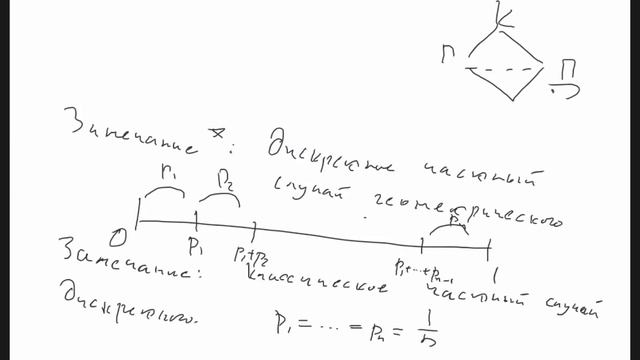 К
Г П
Замечание*: Дискретное частный
случай геометрического
p₁ p₂ pₙ
0 p₁ p₁+p₂ p₁+...+pₙ₋₁ 1
Замечание: Классическое частный случай
Дискретного. p₁ = ... = pₙ = 1/n